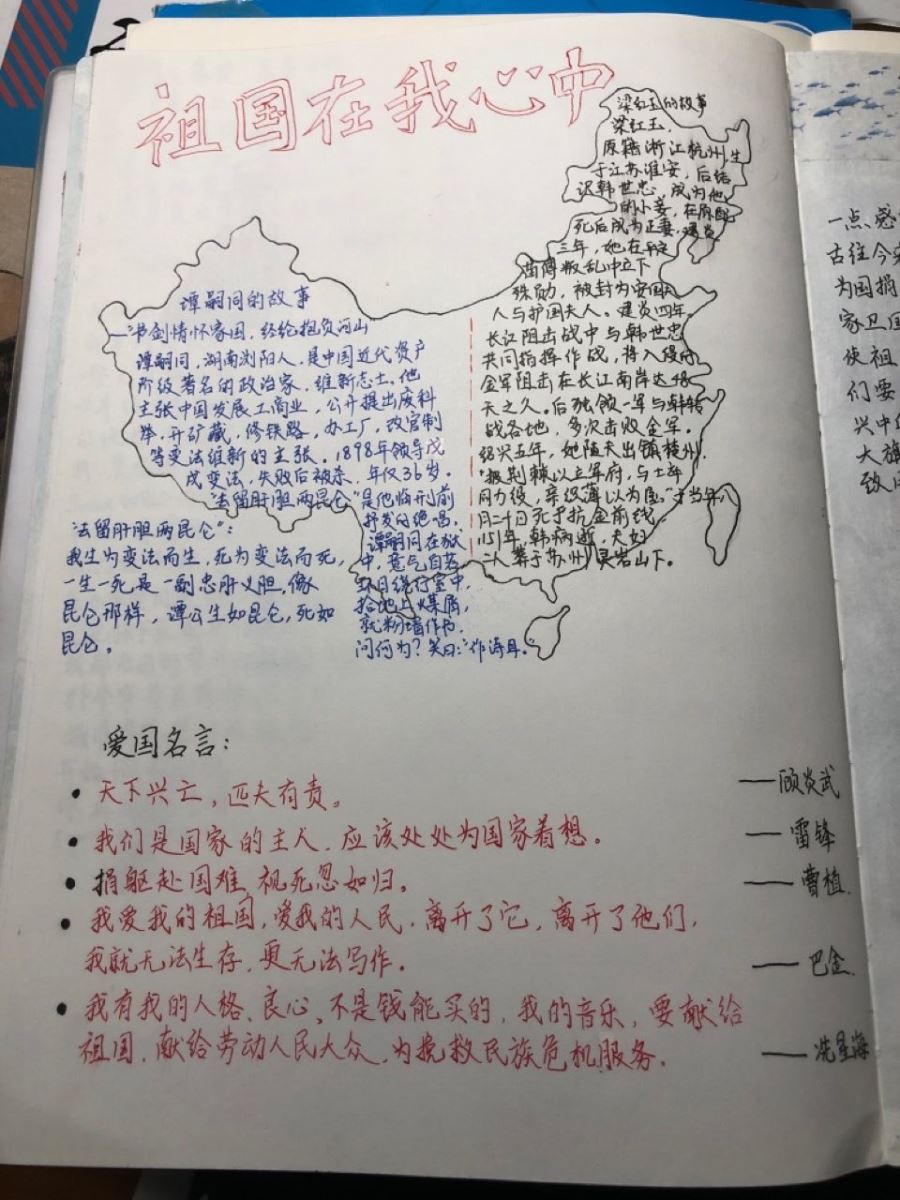 祖国在我心中
梁红玉的故事
梁红玉,
原籍浙江杭州,生
于江苏淮安,后结
识韩世忠,成为他
的小妾,在原配
死后成为正妻。建炎
三年,她在平定
苗傅叛乱中立下
殊勋,被封为安国夫
人与护国夫人。建炎四年
长江阻击战中与韩世忠
共同指挥作战,将入侵的
金军阻击在长江南岸达48
天之久。后独领一军与韩转
战各地,多次击败金军。
绍兴五年,她随夫出镇楚州,
"披荆棘以立军府,与士卒
同力役,亲织薄以为屋。"于当年八
月二十日死于抗金前线
1151年,韩病逝,夫妇
二人葬于苏州灵岩山下。
谭嗣同的故事
—书剑情怀家国,经纶抱负河山
谭嗣同,湖南浏阳人,是中国近代资产
阶级著名的政治家、维新志士。他
主张中国发展工商业,公开提出废科
举、开矿藏,修铁路,办工厂,改官制
等变法维新的主张。1898年领导戊
戌变法,失败后被杀,年仅36岁。
"去留肝胆两昆仑"是他临刑前
抒发的绝唱。
谭嗣同在狱
中,意气自若
环目绕行室中,
拾地上煤屑,
就粉墙作书,
问何为?笑曰:"作诗耳。"
"去留肝胆两昆仑":
我生为变法而生,死为变法而死,
一生一死是一副忠肝义胆,像
昆仑那样,谭公生如昆仑,死如
昆仑。
爱国名言:
• 天下兴亡,匹夫有责。 ——顾炎武
• 我们是国家的主人,应该处处为国家着想。 ——雷锋
• 捐躯赴国难,视死忽如归。 ——曹植
• 我爱我的祖国,爱我的人民,离开了它,离开了他们,
我就无法生存,更无法写作。 ——巴金
• 我有我的人格、良心、不是钱能买的,我的音乐,要献给
祖国,献给劳动人民大众,为挽救民族危机服务。 ——冼星海
一点感
古往今来
为国捐
家卫国
使祖
们要
兴中
大旗
致